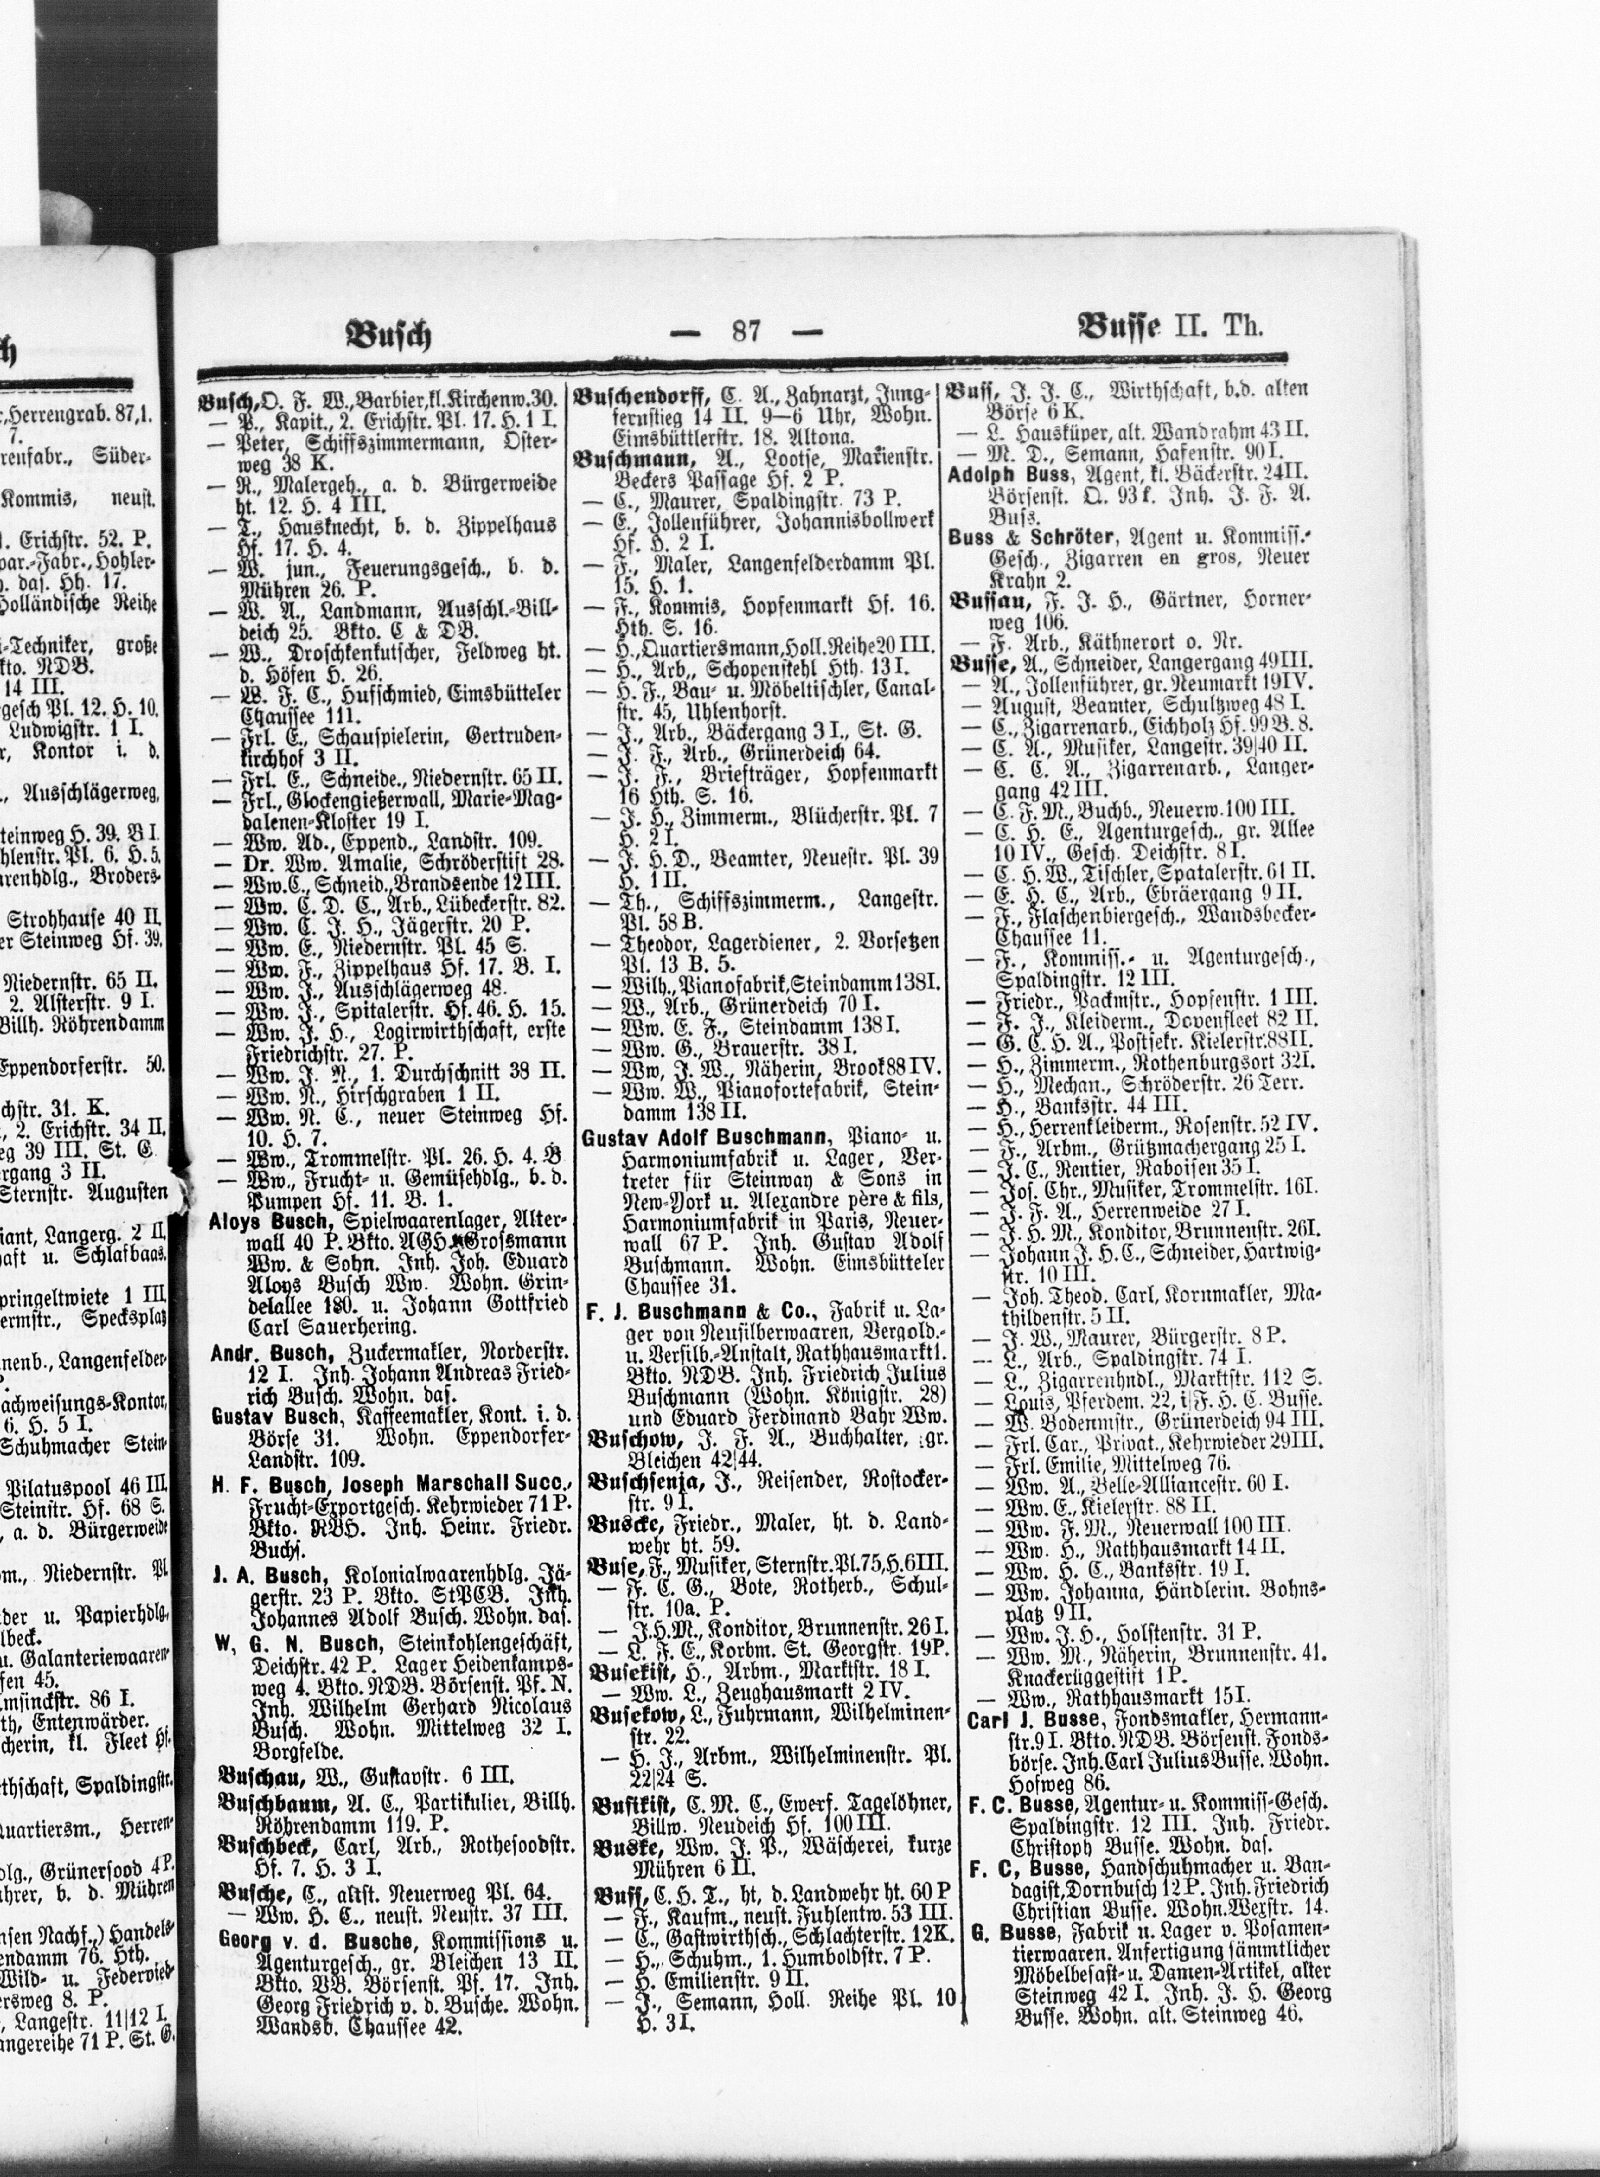 Busch — 87 — Busse II. Th.
Busch, O. F. W., Barbier, kl. Kirchenw. 30.
— P., Kapit., 2. Erichstr. Pl. 17. H. 1 I.
— Peter, Schiffszimmermann, Oster-
weg 38 K.
— R., Malergeh., a. d. Bürgerweide
ht. 12. H. 4 III.
— T., Hausknecht, b. d. Zippelhaus
Hf. 17. H. 4.
— W. jun., Feuerungsgesch., b. d.
Mühren 26. P.
— W. A., Landmann, Ausschl.-Bill-
deich 25. Bkto. C & DB.
— W., Droschkenkutscher, Feldweg ht.
d. Höfen H. 26.
— W. F. C., Hufschmied, Eimsbütteler
Chaussee 111.
— Frl. E., Schauspielerin, Gertruden-
kirchhof 3 II.
— Frl. E., Schneide., Niedernstr. 65 II.
— Frl., Glockengießerwall, Marie-Mag-
dalenen-Kloster 19 I.
— Ww. Ad., Eppend., Landstr. 109.
— Dr. Ww. Amalie, Schröderstift 28.
— Ww. C., Schneid., Brandsende 12 III.
— Ww. C. D. C., Arb., Lübeckerstr. 82.
— Ww. C. J. H., Jägerstr. 20 P.
— Ww. E., Niedernstr. Pl. 45 S.
— Ww. F., Zippelhaus Hf. 17. B. I.
— Ww. J., Ausschlägerweg 48.
— Ww. J., Spitalerstr. Hf. 46. H. 15.
— Ww. J. H., Logirwirthschaft, erste
Friedrichstr. 27. P.
— Ww. J. N., 1. Durchschnitt 38 II.
— Ww. N., Hirschgraben 1 II.
— Ww. N. C., neuer Steinweg Hf.
10. H. 7.
— Ww., Trommelstr. Pl. 26. H. 4. B
— Ww., Frucht- u. Gemüsehdlg., b. d.
Pumpen Hf. 11. B. 1.
Aloys Busch, Spielwaarenlager, Alter-
wall 40 P. Bkto. AGH Grossmann
Ww. & Sohn. Inh. Joh. Eduard
Aloys Busch Ww. Wohn. Grin-
delallee 180. u. Johann Gottfried
Carl Sauerhering.
Andr. Busch, Zuckermakler, Norderstr.
12 I. Inh. Johann Andreas Fried-
rich Busch. Wohn. das.
Gustav Busch, Kaffeemakler, Kont. i. d.
Börse 31. Wohn. Eppendorfer-
Landstr. 109.
H. F. Busch, Joseph Marschall Succ.,
Frucht-Exportgesch. Kehrwieder 71 P.
Bkto. RBH. Inh. Heinr. Friedr.
Buchs.
J. A. Busch, Kolonialwaarenhdlg. Jä-
gerstr. 23 P. Bkto. StPCB. Inh.
Johannes Adolf Busch. Wohn. das.
W. G. N. Busch, Steinkohlengeschäft,
Deichstr. 42 P. Lager Heidenkamps-
weg 4. Bkto. NDB. Börsenst. Pf. N.
Inh. Wilhelm Gerhard Nicolaus
Busch. Wohn. Mittelweg 32 I.
Borgfelde.
Buschau, W., Gustavstr. 6 III.
Buschbaum, A. C., Partikulier, Billh.
Röhrendamm 119. P.
Buschbeck, Carl, Arb., Rothesoodstr.
Hf. 7. H. 3 I.
Busche, C., altst. Neuerweg Pl. 64.
— Ww. H. C., neust. Neustr. 37 III.
Georg v. d. Busche, Kommissions u.
Agenturgesch., gr. Bleichen 13 II.
Bkto. VB. Börsenst. Pf. 17. Inh.
Georg Friedrich v. d. Busche. Wohn.
Wandsb. Chaussee 42.
Buschendorff, C. A., Zahnarzt, Jung-
fernstieg 14 II. 9—6 Uhr, Wohn.
Eimsbüttlerstr. 18. Altona.
Buschmann, A., Lootse, Marienstr.
Beckers Passage Hf. 2 P.
— C., Maurer, Spaldingstr. 73 P.
— E., Jollenführer, Johannisbollwerk
Hf. H. 2 I.
— F., Maler, Langenfelderdamm Pl.
15. H. 1.
— F., Kommis, Hopfenmarkt Hf. 16.
Hth. S. 16.
— H., Quartiersmann, Holl. Reihe 20 III.
— H., Arb., Schopenstehl Hth. 13 I.
— H. F., Bau- u. Möbeltischler, Canal-
str. 45, Uhlenhorst.
— J., Arb., Bäckergang 3 I., St. G.
— J. F., Arb., Grünerdeich 64.
— J. F., Briefträger, Hopfenmarkt
16 Hth. S. 16.
— J. H., Zimmerm., Blücherstr. Pl. 7
H. 2 I.
— J. H. D., Beamter, Neuestr. Pl. 39
H. 1 II.
— Th., Schiffszimmerm., Langestr.
Pl. 58 B.
— Theodor, Lagerdiener, 2. Vorsetzen
Pl. 13 B. 5.
— Wilh., Pianofabrik, Steindamm 138 I.
— W., Arb., Grünerdeich 70 I.
— Ww. E. F., Steindamm 138 I.
— Ww. G., Brauerstr. 38 I.
— Ww, J. W., Näherin, Brook 88 IV.
— Ww. W., Pianofortefabrik, Stein-
damm 138 II.
Gustav Adolf Buschmann, Piano- u.
Harmoniumfabrik u. Lager, Ver-
treter für Steinway & Sons in
New-York u. Alexandre père & fils,
Harmoniumfabrik in Paris, Neuer-
wall 67 P. Inh. Gustav Adolf
Buschmann. Wohn. Eimsbütteler
Chaussee 31.
F. J. Buschmann & Co., Fabrik u. La-
ger von Neusilberwaaren, Vergold.-
u. Versilb.-Anstalt, Rathhausmarkt 1.
Bkto. NDB. Inh. Friedrich Julius
Buschmann (Wohn. Königstr. 28)
und Eduard Ferdinand Bahr Ww.
Buschow, J. F. A., Buchhalter, gr.
Bleichen 42/44.
Buschsenja, J., Reisender, Rostocker-
str. 9 I.
Buscke, Friedr., Maler, ht. d. Land-
wehr ht. 59.
Buse, F., Musiker, Sternstr. Pl. 75, H. 6 III.
— F. C. G., Bote, Rotherb., Schul-
str. 10a. P.
— J. H. M., Konditor, Brunnenstr. 26 I.
— L. F. E., Korbm. St. Georgstr. 19 P.
Busekist, H., Arbm., Marktstr. 18 I.
— Ww. L., Zeughausmarkt 2 IV.
Busekow, L., Fuhrmann, Wilhelminen-
str. 22.
— H. J., Arbm., Wilhelminenstr. Pl.
22/24 S.
Busikist, C. M. C., Ewerf. Tagelöhner,
Billw. Neudeich Hf. 100 III.
Buske, Ww. J. P., Wäscherei, kurze
Mühren 6 II.
Buss, C. H. T., ht, d. Landwehr ht. 60 P
— F., Kaufm., neust. Fuhlentw. 53 III.
— C., Gastwirthsch., Schlachterstr. 12 K.
— H., Schuhm., 1. Humboldstr. 7 P.
— H. Emilienstr. 9 II.
— J., Semann, Holl. Reihe Pl. 10
H. 3 I.
Buss, J. J. C., Wirthschaft, b. d. alten
Börse 6 K.
— L. Hausküper, alt. Wandrahm 43 II.
— M. D., Semann, Hafenstr. 90 I.
Adolph Buss, Agent, kl. Bäckerstr. 24 II.
Börsenst. O. 93 k. Inh. J. F. A.
Buss.
Buss & Schröter, Agent u. Kommiss.-
Gesch., Zigarren en gros, Neuer
Krahn 2.
Bussau, F. J. H., Gärtner, Horner-
weg 106.
— F. Arb., Käthnerort o. Nr.
Busse, A., Schneider, Langergang 49 III.
— A., Jollenführer, gr. Neumarkt 19 IV.
— August, Beamter, Schultzweg 48 I.
— C., Zigarrenarb., Eichholz Hf. 99 B. 8.
— C. A., Musiker, Langestr. 39/40 II.
— C. C. A., Zigarrenarb., Langer-
gang 42 III.
— C. F. M., Buchb., Neuerw. 100 III.
— C. H. E., Agenturgesch., gr. Allee
10 IV., Gesch. Deichstr. 8 I.
— C. H. W., Tischler, Spatalerstr. 61 II.
— E. H. C., Arb., Ebräergang 9 II.
— F., Flaschenbiergesch., Wandsbecker-
Chaussee 11.
— F., Kommiss.- u. Agenturgesch.,
Spaldingstr. 12 III.
— Friedr., Packmstr., Hopfenstr. 1 III.
— F. J., Kleiderm., Dovenfleet 82 II.
— G. C. H. A., Postsekr. Kielerstr. 88 II.
— H., Zimmerm., Rothenburgsort 32 I.
— H., Mechan., Schröderstr. 26 Terr.
— H., Banksstr. 44 III.
— H., Herrenkleiderm., Rosenstr. 52 IV.
— F., Arbm., Grützmachergang 25 I.
— J. C., Rentier, Raboisen 35 I.
— Jos. Chr., Musiker, Trommelstr. 16 I.
— J. F. A., Herrenweide 27 I.
— J. H. M., Konditor, Brunnenstr. 26 I.
— Johann J. H. C., Schneider, Hartwig-
str. 10 III.
— Joh. Theod. Carl, Kornmakler, Ma-
thildenstr. 5 II.
— J. W., Maurer, Bürgerstr. 8 P.
— L., Arb., Spaldingstr. 74 I.
— L., Zigarrenhndl., Marktstr. 112 S.
— Louis, Pferdem. 22, i/F. H. C. Busse.
— W. Bodenmstr., Grünerdeich 94 III.
— Frl. Car., Privat., Kehrwieder 29 III.
— Frl. Emilie, Mittelweg 76.
— Ww. A., Belle-Alliancestr. 60 I.
— Ww. E., Kielerstr. 88 II.
— Ww. F. M., Neuerwall 100 III.
— Ww. H., Rathhausmarkt 14 II.
— Ww. H. C., Banksstr. 19 I.
— Ww. Johanna, Händlerin. Bohns-
platz 9 II.
— Ww. J. H., Holstenstr. 31 P.
— Ww. M., Näherin, Brunnenstr. 41.
Knackerüggestift 1 P.
— Ww., Rathhausmarkt 15 I.
Carl J. Busse, Fondsmakler, Hermann-
str. 9 I. Bkto. NDB. Börsenst. Fonds-
börse. Inh. Carl Julius Busse. Wohn.
Hofweg 86.
F. C. Busse, Agentur- u. Kommiss-Gesch.
Spaldingstr. 12 III. Inh. Friedr.
Christoph Busse. Wohn. das.
F. C, Busse, Handschuhmacher u. Ban-
dagist, Dornbusch 12 P. Inh. Friedrich
Christian Busse. Wohn. Wexstr. 14.
G. Busse, Fabrik u. Lager v. Posamen-
tierwaaren. Anfertigung sämmtlicher
Möbelbesatz- u. Damen-Artikel, alter
Steinweg 42 I. Inh. J. H. Georg
Busse. Wohn. alt. Steinweg 46.